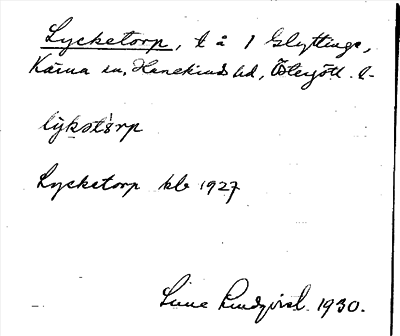 Lycketorp, t å 1 Glyttinge,
Kärna sn, Hanekinds hd, Östergötl. l-
lỳkət𝑜rp
Lycketorp kb 1927
Sune Lindqvist. 1930.